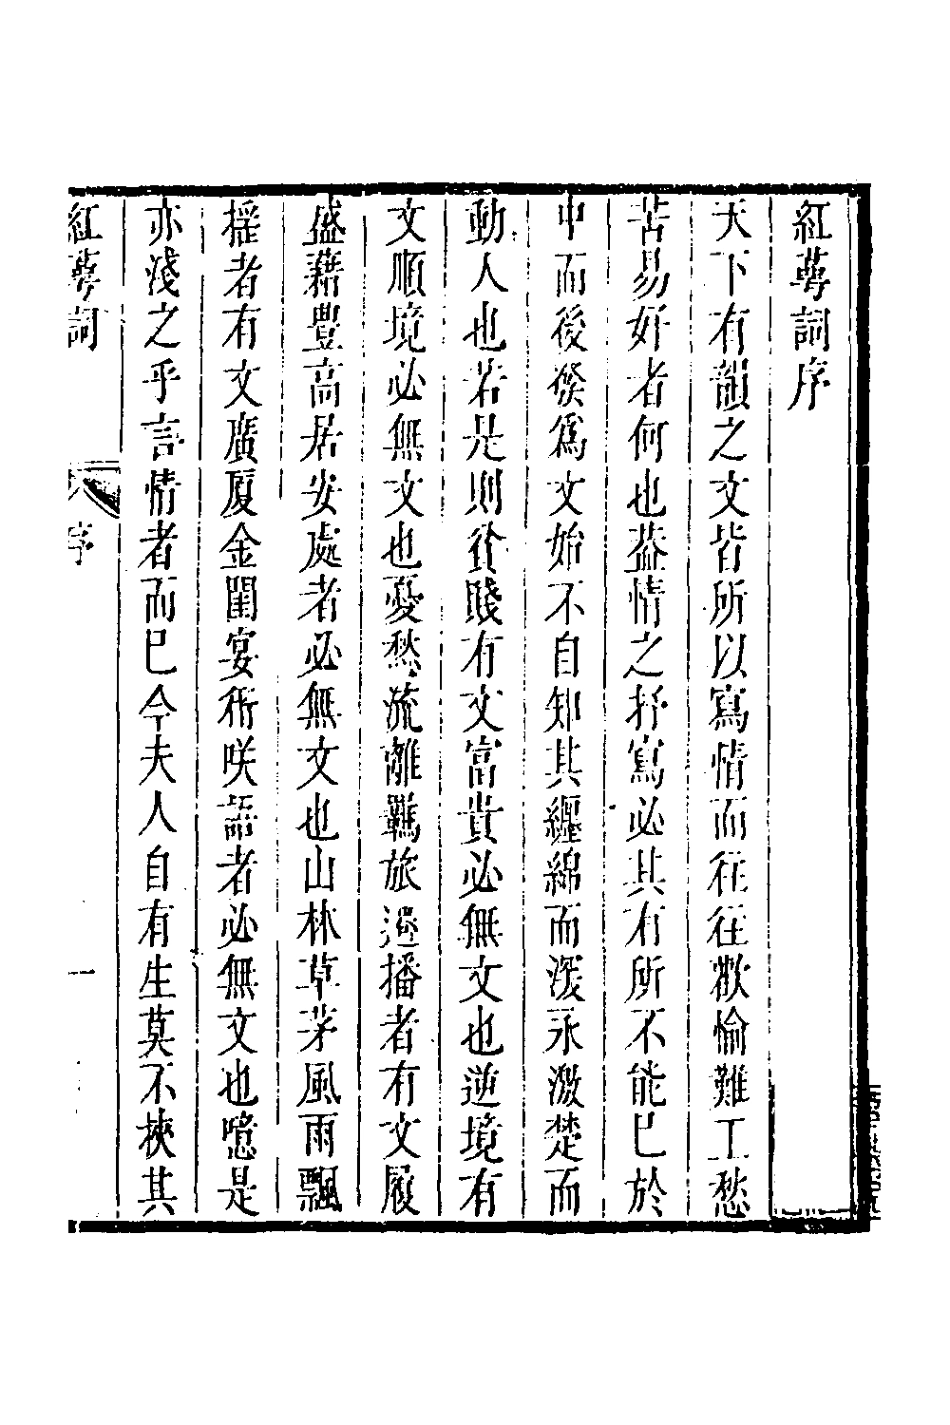 紅萼詞序
天下有韻之文皆所以寫情而往往歡愉難工愁
苦易好者何也葢情之抒寫必其有所不能已於
中而後發爲文始不自知其纏綿而深永激楚而
動人也若是則貧賤有文富貴必無文也逆境有
文順境必無文也憂愁流離羈旅遷播者有文履
盛藉豐高居安處者必無文也山林草茅風雨飄
搖者有文廣厦金閨宴衎咲語者必無文也噫是
亦淺之乎言情者而已今夫人自有生莫不挾其
紅萼詞
序
一